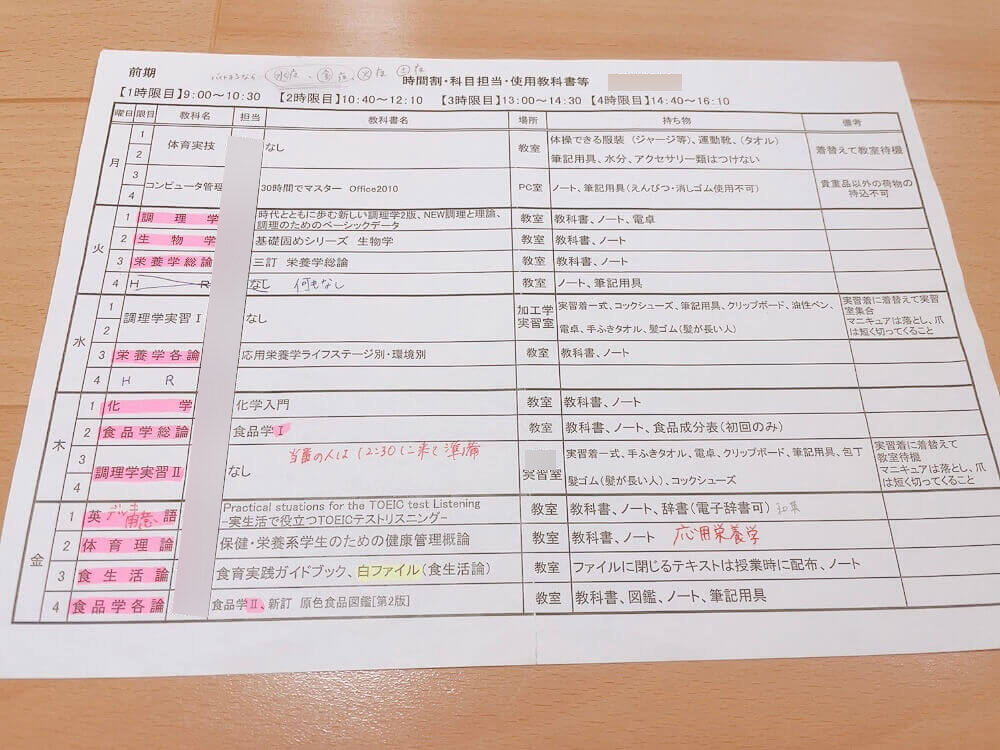 前期
バイトするなら 水夜、金夜、火夜 土夜
時間割・科目担当・使用教科書等
【1時限目】9:00～10:30 【2時限目】10:40～12:10 【3時限目】13:00～14:30 【4時限目】14:40～16:10
曜日 限目 教科名 担当 教科書名 場所 持ち物 備考
月
1
2
体育実技 なし 教室
体操できる服装（ジャージ等）、運動靴、（タオル）
筆記用具、水分、アクセサリー類はつけない
着替えて教室待機
3
4
コンピュータ管理 30時間でマスター Office2010 PC室 ノート、筆記用具（えんぴつ・消しゴム使用不可）
貴重品以外の荷物の
持込不可
火
1 調理学
時代とともに歩む新しい調理学2版、NEW調理と理論、
調理のためのベーシックデータ
教室 教科書、ノート、電卓
2 生物学 基礎固めシリーズ 生物学 教室 教科書、ノート
3 栄養学総論 三訂 栄養学総論 教室 教科書、ノート
4 H R なし 何もなし 教室 ノート、筆記用具
水
1
2
調理学実習Ⅰ なし
加工学
実習室
実習着一式、コックシューズ、筆記用具、クリップボード、油性ペン、
電卓、手ふきタオル、髪ゴム（髪が長い人）
実習着に着替えて実習
室集合
マニキュアは落とし、爪
は短く切ってくること
3 栄養学各論 応用栄養学ライフステージ別・環境別 教室 教科書、ノート
4 H R
木
1 化学 化学入門 教室 教科書、ノート
2 食品学総論 食品学Ⅰ 教室 教科書、ノート、食品成分表（初回のみ）
3
4
調理学実習Ⅱ なし
当番の人は12:30に来て準備
実習室
実習着一式、手ふきタオル、電卓、クリップボード、筆記用具、包丁
髪ゴム（髪が長い人）、コックシューズ
実習着に着替えて
教室待機
マニキュアは落とし、爪
は短く切ってくること
金
1 英語
Practical stuations for the TOEIC test Listening
-実生活で役立つTOEICテストリスニング-
教室 教科書、ノート、辞書（電子辞書可）
2 体育理論 保健・栄養系学生のための健康管理概論 教室 教科書、ノート 応用栄養学
3 食生活論 食育実践ガイドブック、白ファイル（食生活論） 教室 ファイルに閉じるテキストは授業時に配布、ノート
4 食品学各論 食品学Ⅱ、新訂 原色食品図鑑[第2版] 教室 教科書、図鑑、ノート、筆記用具